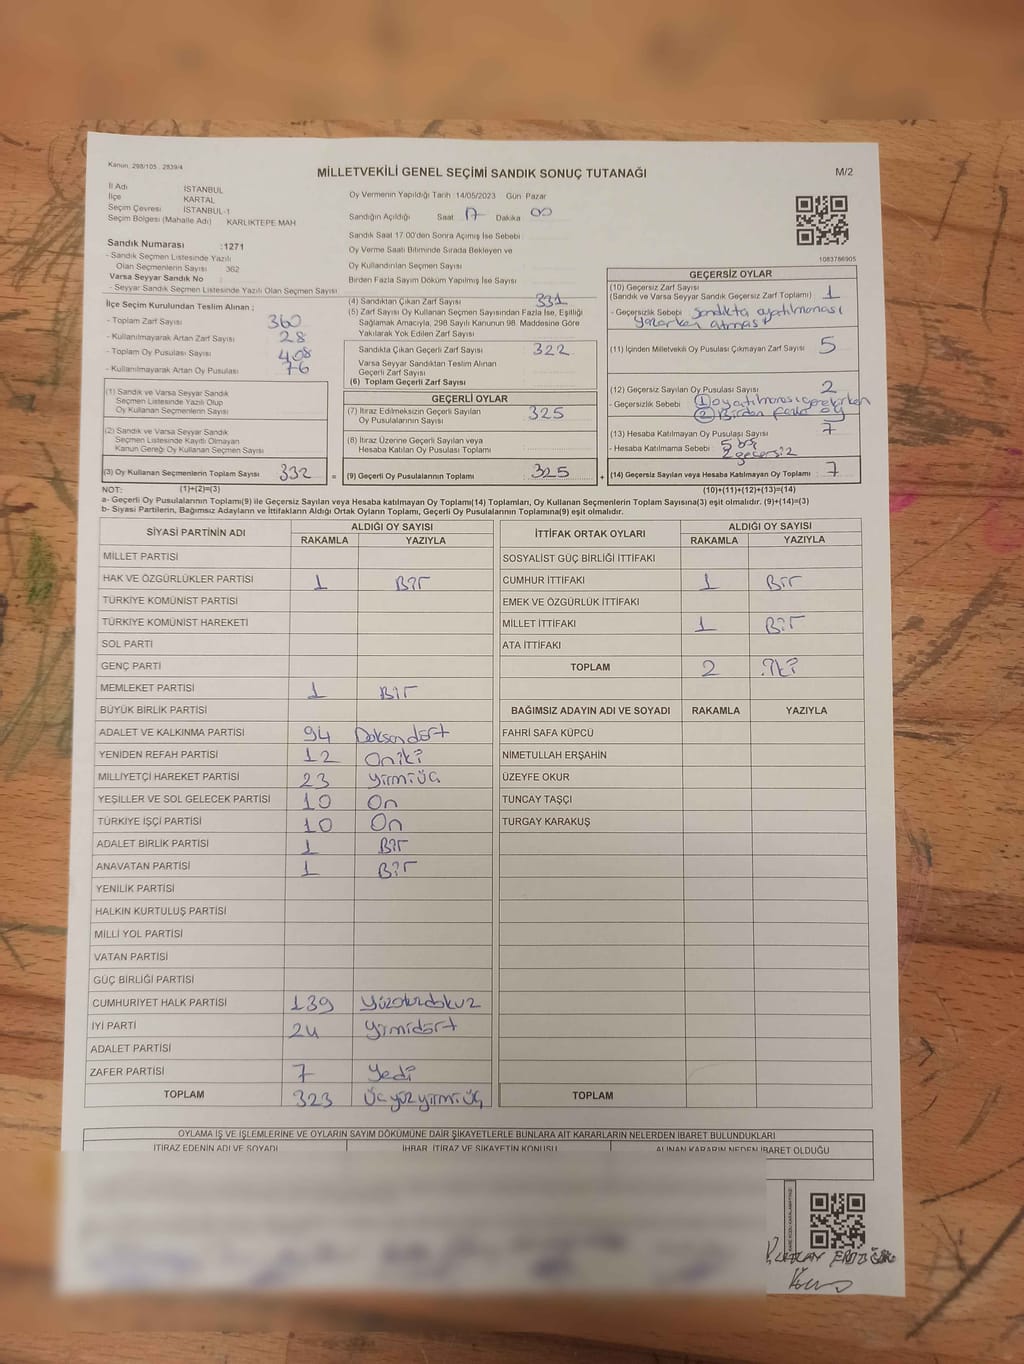 Kanun, 298/105 , 2839/4
MİLLETVEKİLİ GENEL SEÇİMİ SANDIK SONUÇ TUTANAĞI
M/2
İl Adı İSTANBUL
İlçe KARTAL
Seçim Çevresi İSTANBUL-1
Seçim Bölgesi (Mahalle Adı) KARLIKTEPE MAH
Sandık Numarası :1271
- Sandık Seçmen Listesinde Yazılı
Olan Seçmenlerin Sayısı 362
Varsa Seyyar Sandık No :
- Seyyar Sandık Seçmen Listesinde Yazılı Olan Seçmen Sayısı
İlçe Seçim Kurulundan Teslim Alınan ;
- Toplam Zarf Sayısı 360
- Kullanılmayarak Artan Zarf Sayısı 28
- Toplam Oy Pusulası Sayısı 408
- Kullanılmayarak Artan Oy Pusulası 76
(1) Sandık ve Varsa Seyyar Sandık
Seçmen Listesinde Yazılı Olup
Oy Kullanan Seçmenlerin Sayısı
(2) Sandık ve Varsa Seyyar Sandık
Seçmen Listesinde Kayıtlı Olmayan
Kanun Gereği Oy Kullanan Seçmen Sayısı
(3) Oy Kullanan Seçmenlerin Toplam Sayısı 332 =
Oy Vermenin Yapıldığı Tarih :14/05/2023 Gün Pazar
Sandığın Açıldığı Saat 17 Dakika 00
Sandık Saat 17.00'den Sonra Açımış İse Sebebi
Oy Verme Saati Bitiminde Sırada Bekleyen ve
Oy Kullandırılan Seçmen Sayısı
Birden Fazla Sayım Döküm Yapılmış İse Sayısı
(4) Sandıktan Çıkan Zarf Sayısı 331
(5) Zarf Sayısı Oy Kullanan Seçmen Sayısından Fazla İse, Eşitliği
Sağlamak Amacıyla, 298 Sayılı Kanunun 98. Maddesine Göre
Yakılarak Yok Edilen Zarf Sayısı
Sandıkta Çıkan Geçerli Zarf Sayısı 322
Varsa Seyyar Sandıktan Teslim Alınan
Geçerli Zarf Sayısı
(6) Toplam Geçerli Zarf Sayısı
GEÇERLİ OYLAR
(7) İtiraz Edilmeksizin Geçerli Sayılan
Oy Pusulalarının Sayısı 325
(8) İtiraz Üzerine Geçerli Sayılan veya
Hesaba Katılan Oy Pusulası Toplamı
(9) Geçerli Oy Pusulalarının Toplamı 325 +
1083786905
GEÇERSİZ OYLAR
(10) Geçersiz Zarf Sayısı
(Sandık ve Varsa Seyyar Sandık Geçersiz Zarf Toplamı) 1
- Geçersizlik Sebebi Sandıkta
(11) İçinden Milletvekili Oy Pusulası Çıkmayan Zarf Sayısı 5
(12) Geçersiz Sayılan Oy Pusulası Sayısı 2
- Geçersizlik Sebebi ①
② Birden fazla oy
(13) Hesaba Katılmayan Oy Pusulası Sayısı 7
- Hesaba Katılmama Sebebi 5 boş
2 geçersiz
(14) Geçersiz Sayılan veya Hesaba Katılmayan Oy Toplamı 7
NOT: (1)+(2)=(3) (10)+(11)+(12)+(13)=(14)
a- Geçerli Oy Pusulalarının Toplamı(9) ile Geçersiz Sayılan veya Hesaba katılmayan Oy Toplamı(14) Toplamları, Oy Kullanan Seçmenlerin Toplam Sayısına(3) eşit olmalıdır. (9)+(14)=(3)
b- Siyasi Partilerin, Bağımsız Adayların ve İttifakların Aldığı Ortak Oyların Toplamı, Geçerli Oy Pusulalarının Toplamına(9) eşit olmalıdır.
SİYASİ PARTİNİN ADI ALDIĞI OY SAYISI
RAKAMLA YAZIYLA
MİLLET PARTİSİ
HAK VE ÖZGÜRLÜKLER PARTİSİ 1 Bir
TÜRKİYE KOMÜNİST PARTİSİ
TÜRKİYE KOMÜNİST HAREKETİ
SOL PARTİ
GENÇ PARTİ
MEMLEKET PARTİSİ 1 Bir
BÜYÜK BİRLİK PARTİSİ
ADALET VE KALKINMA PARTİSİ 94 Doksandört
YENİDEN REFAH PARTİSİ 12 Oniki
MİLLİYETÇİ HAREKET PARTİSİ 23 Yirmiüç
YEŞİLLER VE SOL GELECEK PARTİSİ 10 On
TÜRKİYE İŞÇİ PARTİSİ 10 On
ADALET BİRLİK PARTİSİ 1 Bir
ANAVATAN PARTİSİ 1 Bir
YENİLİK PARTİSİ
HALKIN KURTULUŞ PARTİSİ
MİLLİ YOL PARTİSİ
VATAN PARTİSİ
GÜÇ BİRLİĞİ PARTİSİ
CUMHURİYET HALK PARTİSİ 139 Yüzotuzdokuz
İYİ PARTİ 24 Yirmidört
ADALET PARTİSİ
ZAFER PARTİSİ 7 Yedi
TOPLAM 323 Üçyüzyirmiüç
İTTİFAK ORTAK OYLARI ALDIĞI OY SAYISI
RAKAMLA YAZIYLA
SOSYALİST GÜÇ BİRLİĞİ İTTİFAKI
CUMHUR İTTİFAKI 1 Bir
EMEK VE ÖZGÜRLÜK İTTİFAKI
MİLLET İTTİFAKI 1 Bir
ATA İTTİFAKI
TOPLAM 2 İki
BAĞIMSIZ ADAYIN ADI VE SOYADI RAKAMLA YAZIYLA
FAHRİ SAFA KÜPCÜ
NİMETULLAH ERŞAHİN
ÜZEYFE OKUR
TUNCAY TAŞÇI
TURGAY KARAKUŞ
TOPLAM
OYLAMA İŞ VE İŞLEMLERİNE VE OYLARIN SAYIM DÖKÜMÜNE DAİR ŞİKAYETLERLE BUNLARA AİT KARARLARIN NELERDEN İBARET BULUNDUKLARI
İTİRAZ EDENİN ADI VE SOYADI İHBAR, İTİRAZ VE ŞİKAYETİN KONUSU ALINAN KARARIN NEDEN İBARET OLDUĞU